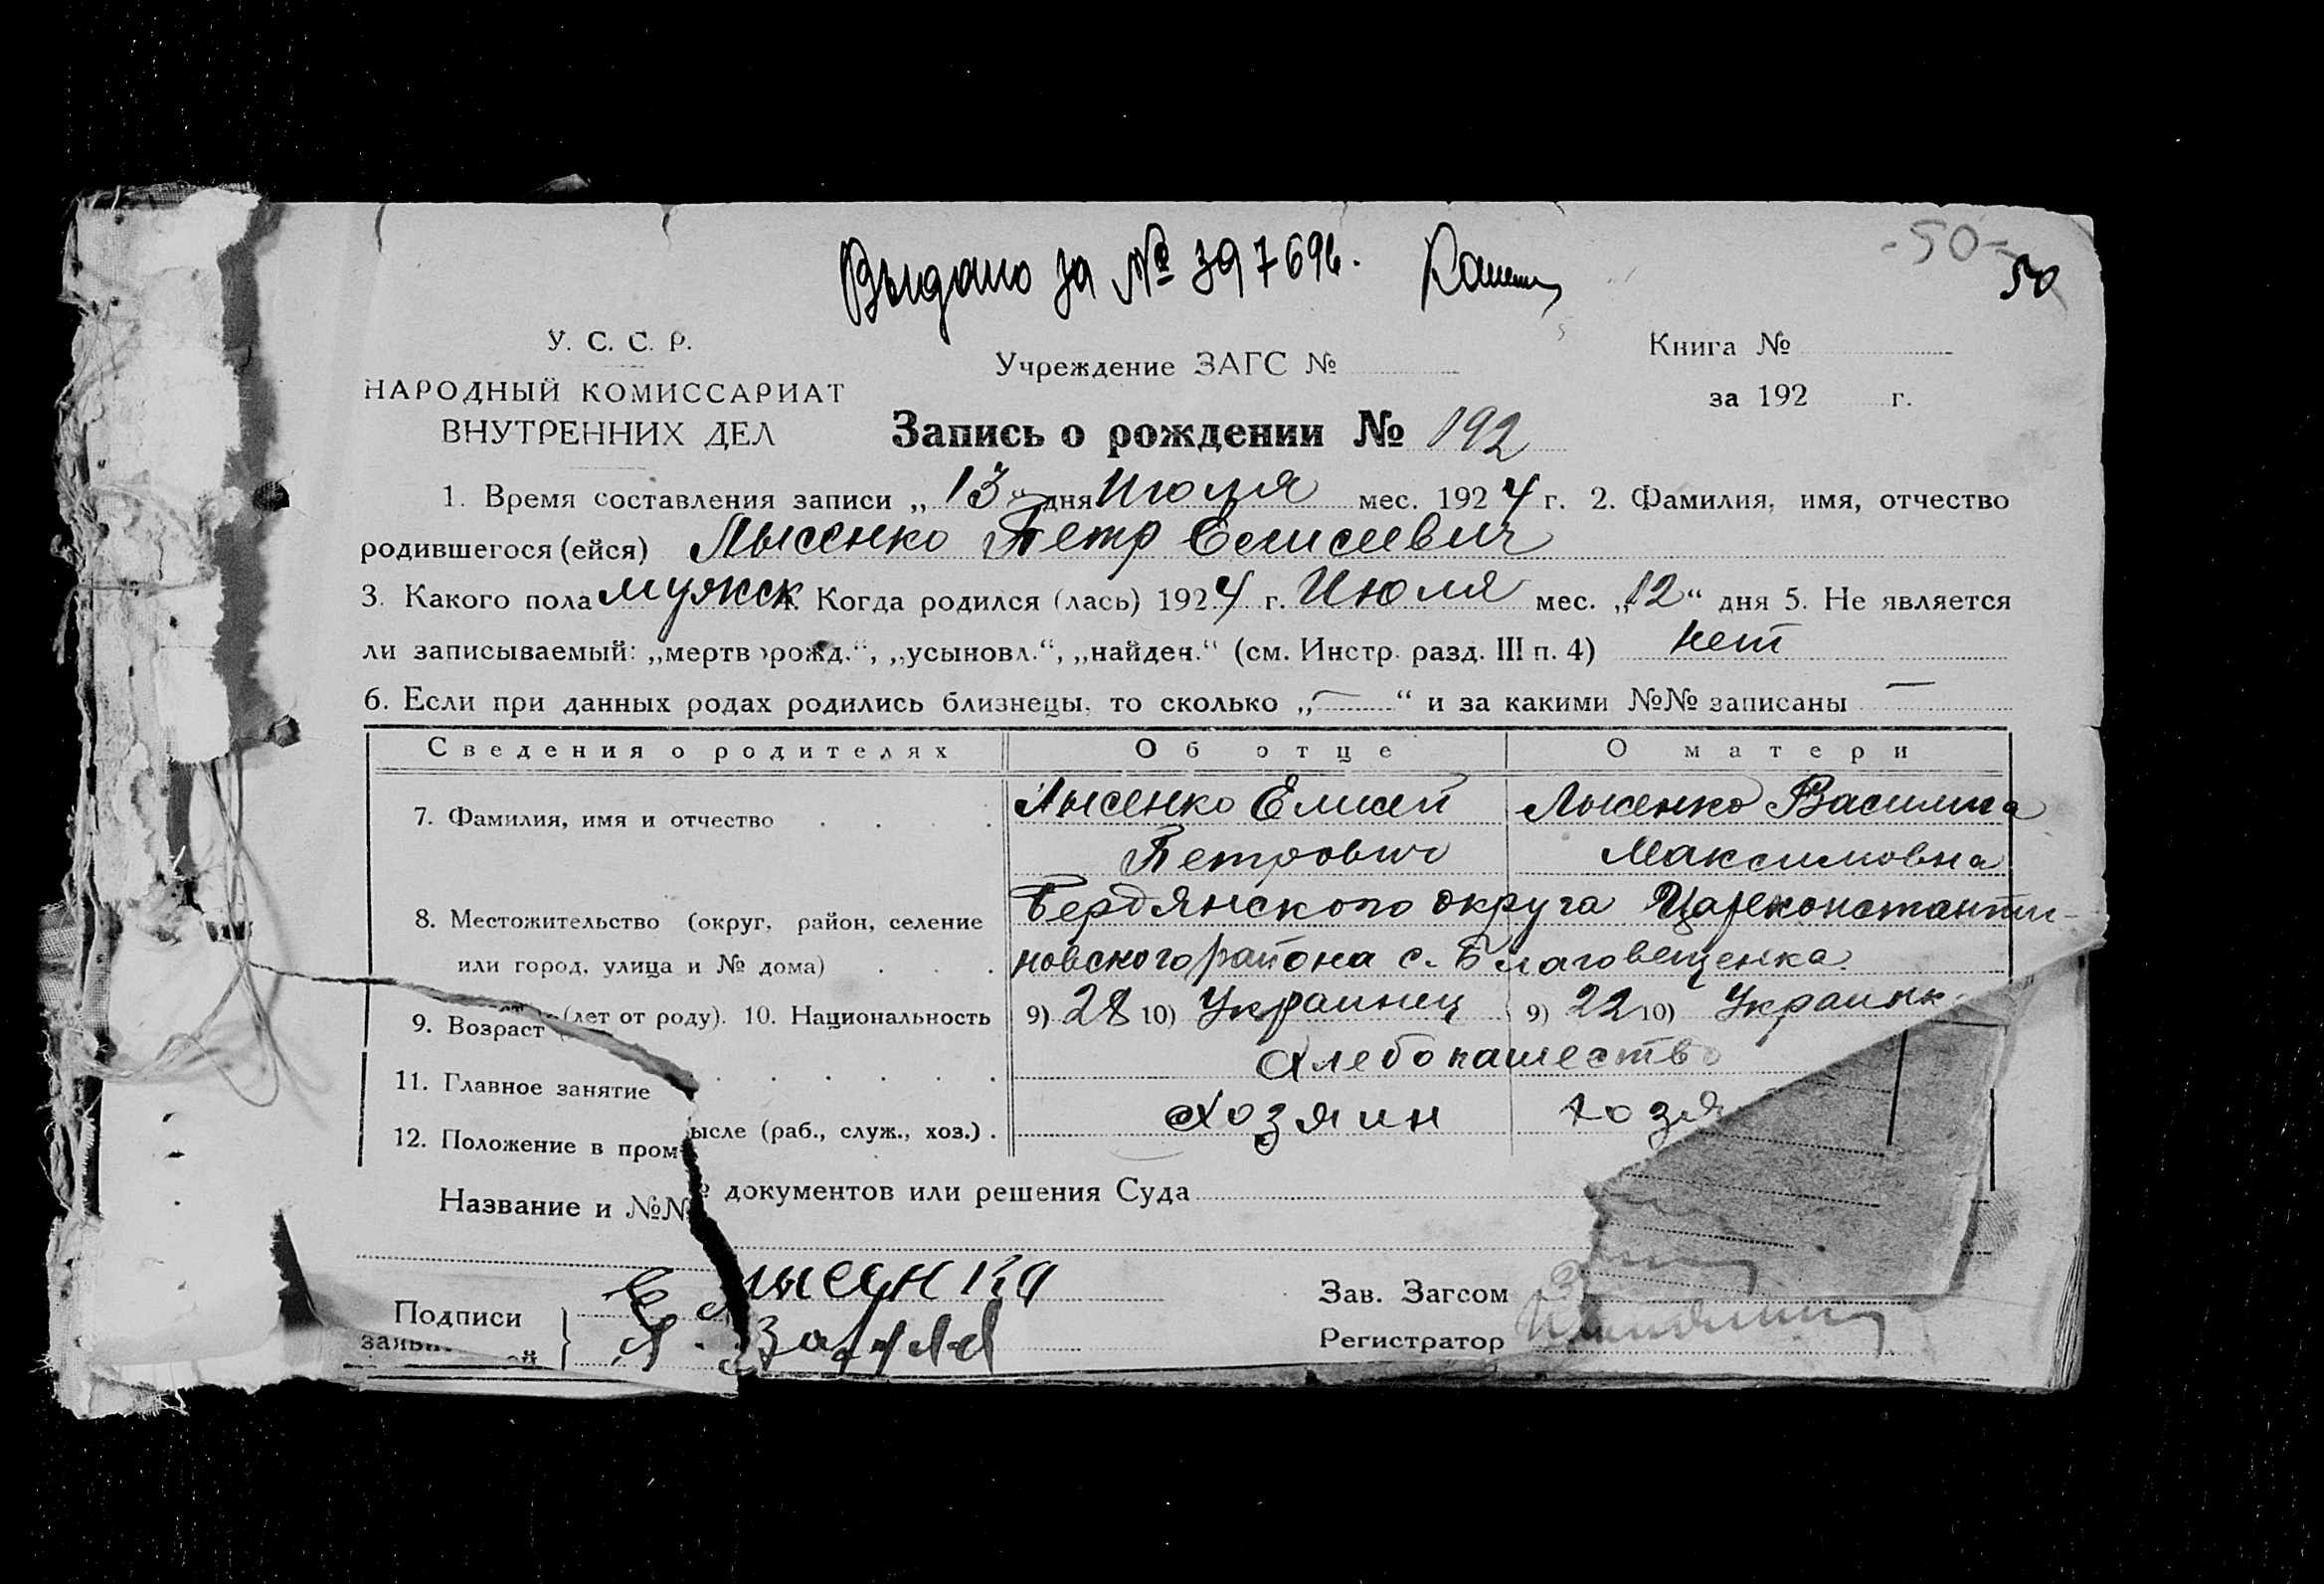 -50-
50
Выдано за № 397696.
У. С. С. Р.
НАРОДНЫЙ КОМИССАРИАТ
ВНУТРЕННИХ ДЕЛ
Учреждение ЗАГС №
Книга №
за 192 г.
Запись о рождении № 192
1. Время составления записи „13“ дня Июля мес. 1924 г. 2. Фамилия, имя, отчество
родившегося (ейся) Лысенко Петр Елисеевич
3. Какого пола мужск. Когда родился (лась) 1924 г. Июля мес. „12“ дня 5. Не является
ли записываемый: „мертворожд.“, „усыновл.“, „найден.“ (см. Инстр. разд. III п. 4) нет
6. Если при данных родах родились близнецы, то сколько „—“ и за какими №№ записаны —
Сведения о родителях Об отце О матери
7. Фамилия, имя и отчество Лысенко Елисей Лысенко Василина
Петрович Максимовна
8. Местожительство (округ, район, селение Бердянского округа Цареконстанти-
или город, улица и № дома) новского района с. Благовещенка.
9. Возраст (лет от роду). 10. Национальность 9) 28 10) Украинец 9) 22 10) Украинк
11. Главное занятие Хлебопашество
12. Положение в промысле (раб., служ., хоз.) Хозяин хозя
Название и №№ документов или решения Суда
Подписи Е Лысенка
Зав. Загсом
Регистратор